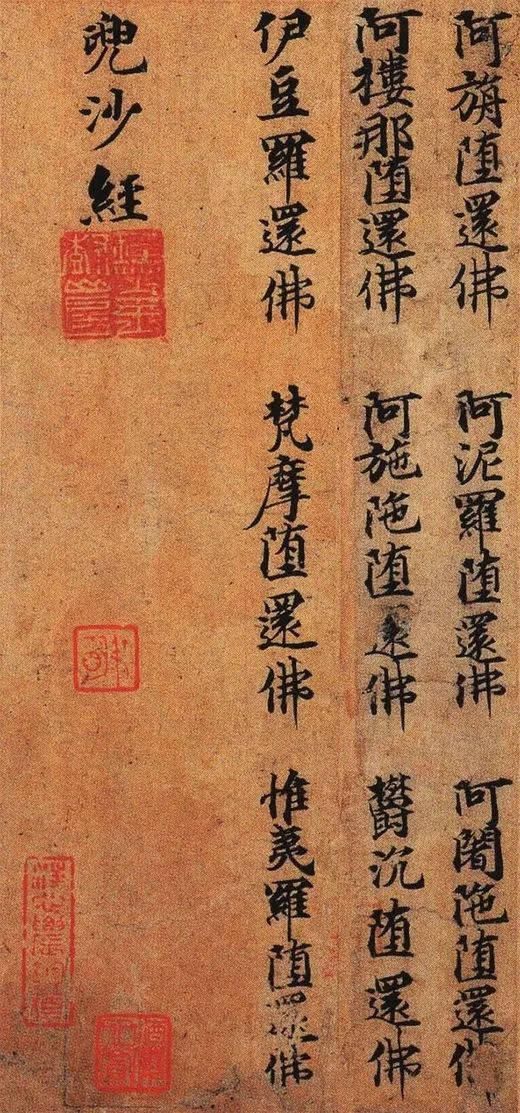 阿旃堕還佛 阿泥羅堕還佛 阿闍陁堕還佛
阿摟那堕還佛 阿施陁堕還佛 欝沉堕還佛
伊豆羅還佛 梵摩堕還佛 惟夷羅堕還佛
兜沙經